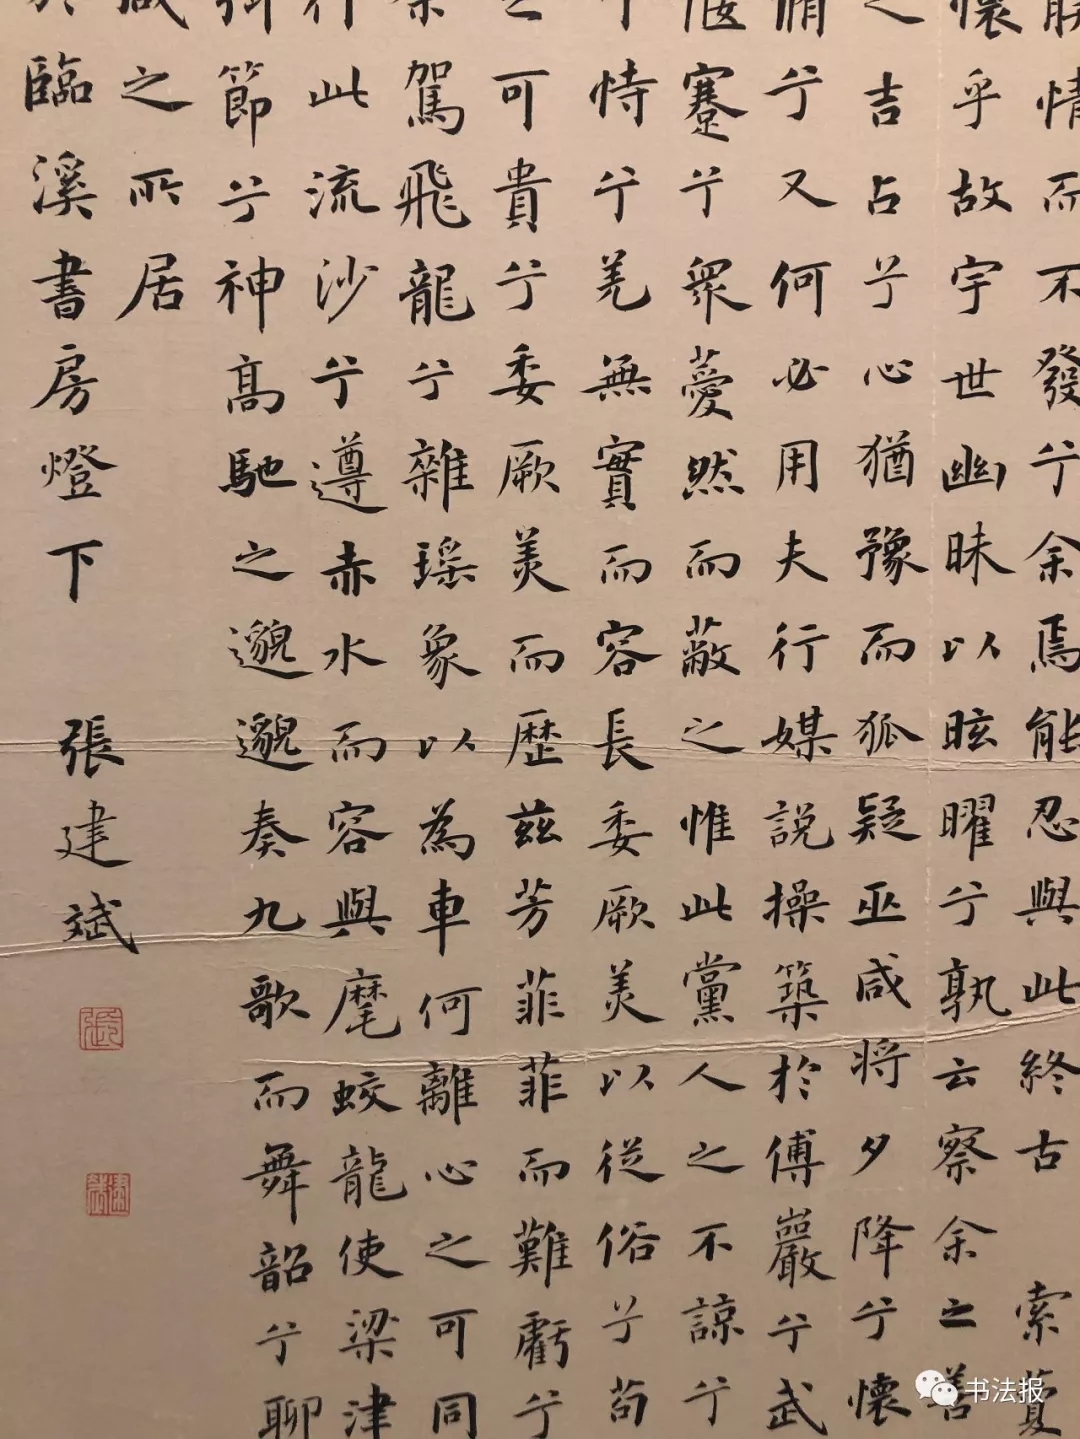 朕情而不發兮余焉能忍與此終古 索藑
懷乎故宇世幽昧以眩曜兮孰云察余之善
之吉占兮心猶豫而狐疑巫咸将夕降兮懷
脩兮又何必用夫行媒說操築於傅巖兮武
偃蹇兮衆薆然而蔽之惟此黨人之不諒兮
恃兮羌無實而容長委厥美以從俗兮苟
之可貴兮委厥美而歷茲芳菲菲而難虧兮
駕飛龍兮雜瑤象以為車何離心之可同
行此流沙兮遵赤水而容與麾蛟龍使梁津
抑節兮神高馳之邈邈奏九歌而舞韶兮聊
咸之所居
於臨溪書房燈下 張建斌
張
书法报